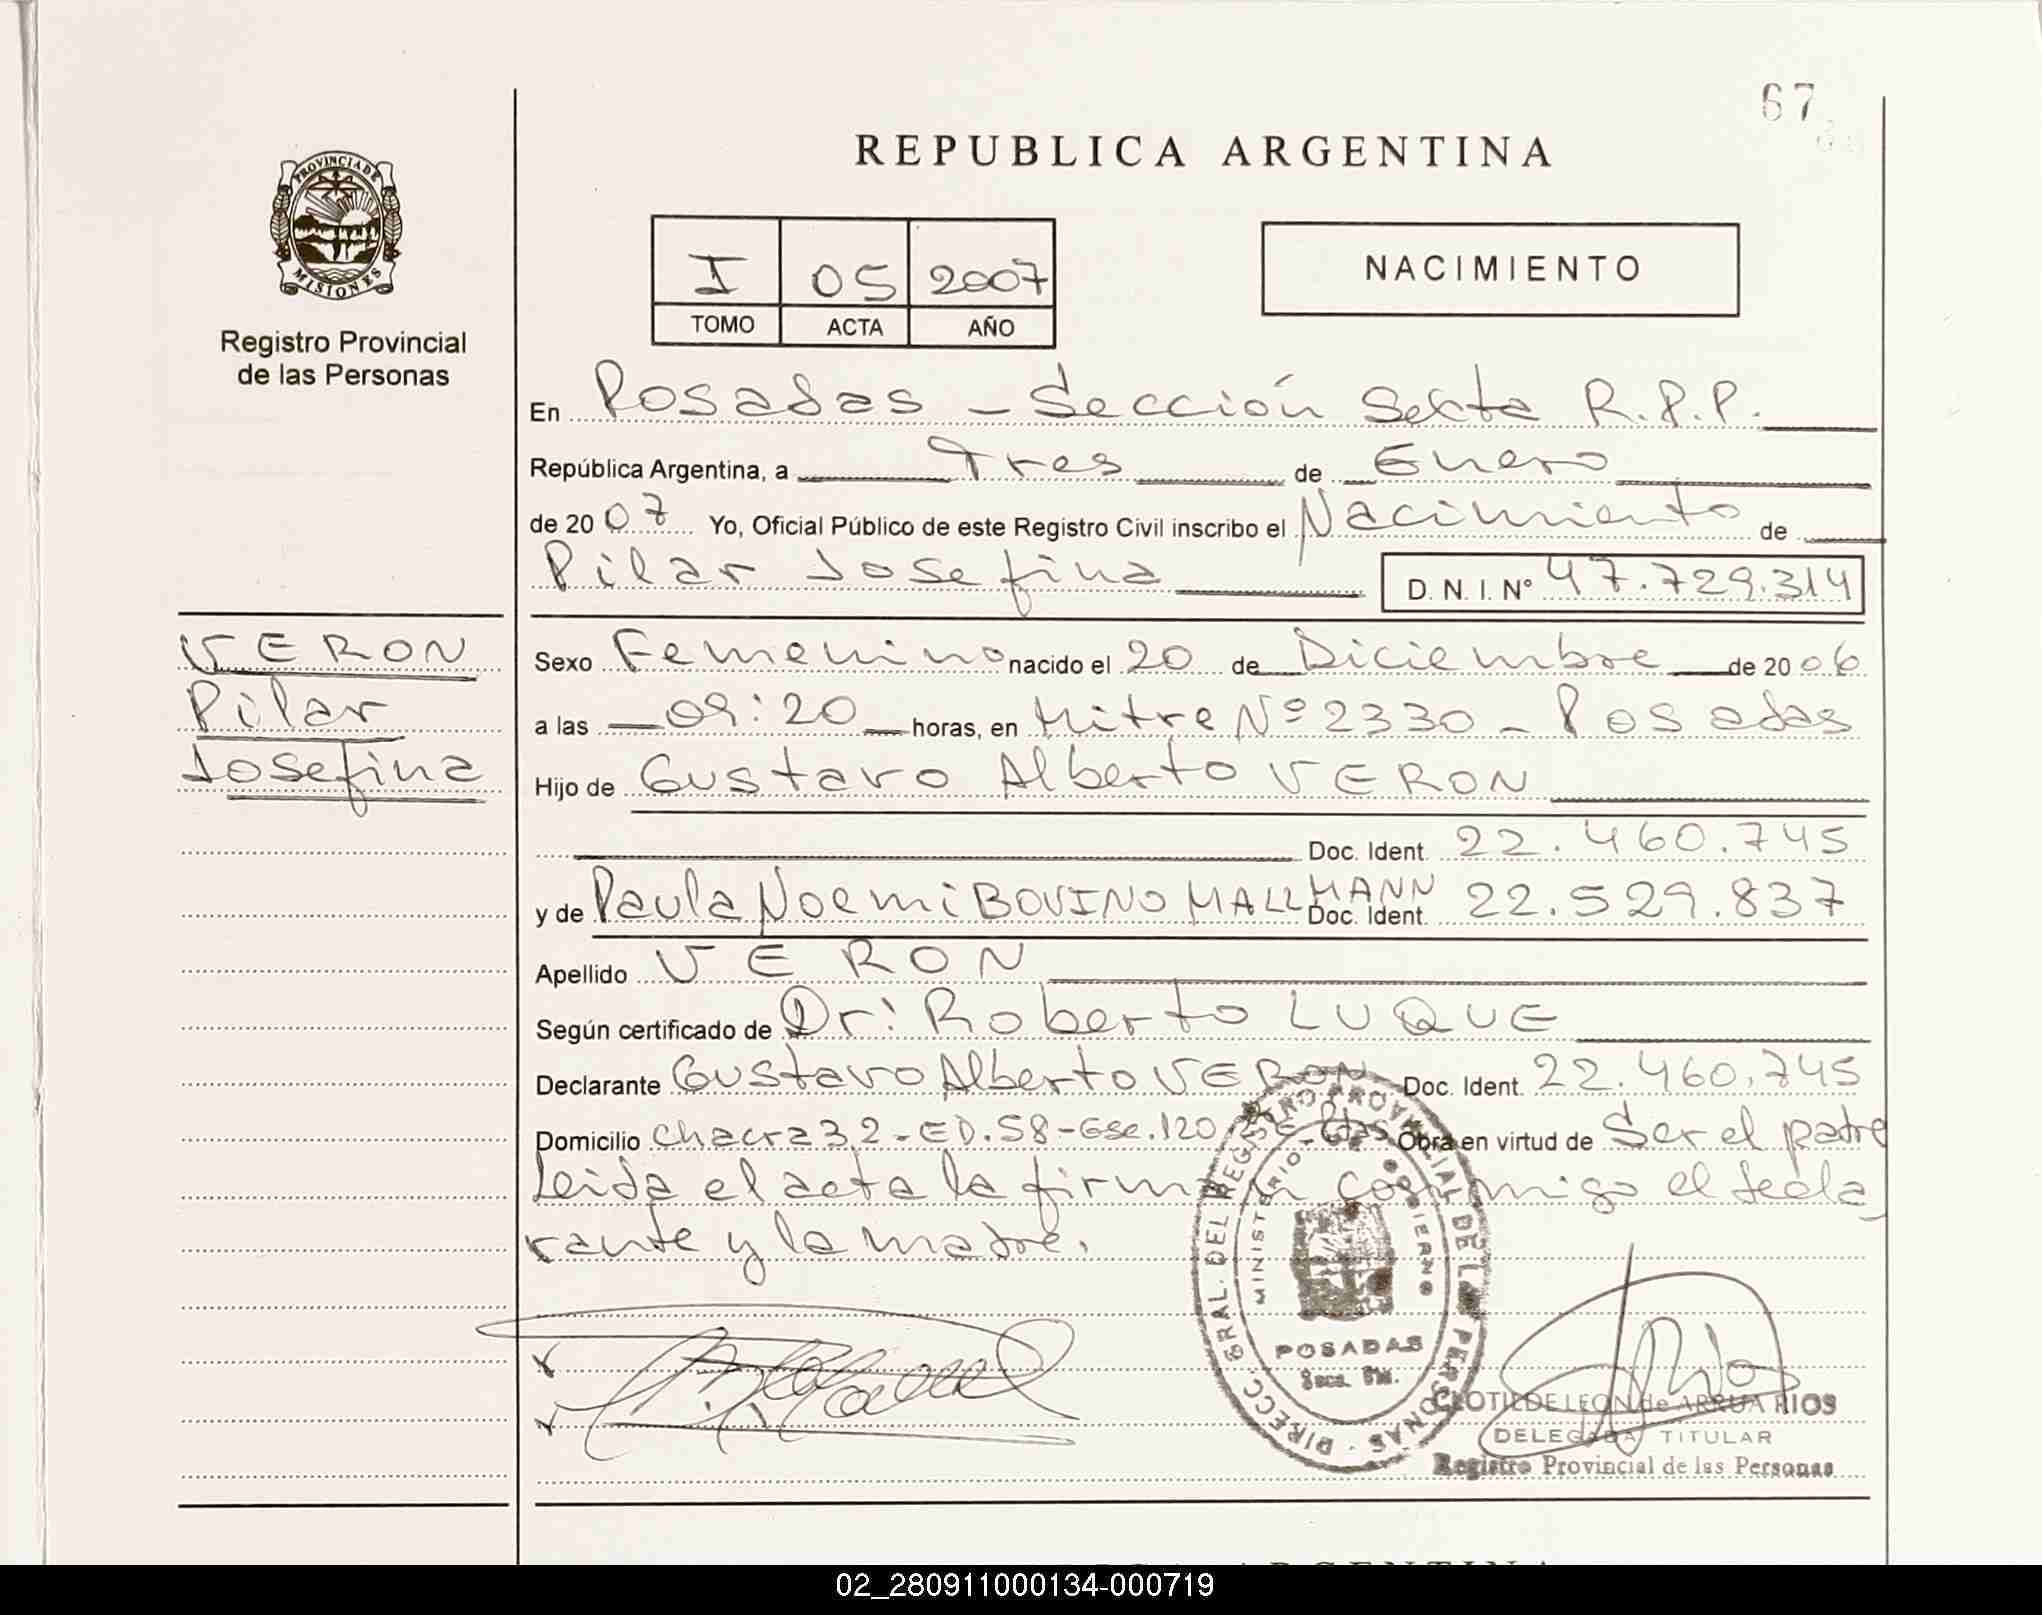 67
REPUBLICA ARGENTINA
PROVINCIA DE
MISIONES
Registro Provincial
de las Personas
I 05 2007
TOMO ACTA AÑO
NACIMIENTO
En Posadas - Sección Sexta R.P.P.
República Argentina, a Tres de Enero
de 2007 Yo, Oficial Público de este Registro Civil inscribo el Nacimiento de
Pilar Josefina D. N. I. Nº 47.729.314
VERON
Pilar
Josefina
Sexo Femenino nacido el 20 de Diciembre de 2006
a las 09:20 horas, en Mitre Nº 2330 - Posadas
Hijo de Gustavo Alberto VERON
Doc. Ident. 22.460.745
y de Paula Noemi BOVINO MALLMANN Doc. Ident. 22.529.837
Apellido VERON
Según certificado de Dr: Roberto LUQUE
Declarante Gustavo Alberto VERON Doc. Ident. 22.460.745
Domicilio Chacra 32-ED.58-Esc.120 Obra en virtud de Ser el padre
Leida el acta la firman conmigo el decla
rante y la madre.
DIRECC. GRAL. DEL REGISTRO PROVINCIAL DE LAS PERSONAS
MINISTERIO DE GOBIERNO
POSADAS
CLOTILDE LEON de ARRUA RIOS
DELEGADA TITULAR
Registro Provincial de las Personas
02_280911000134-000719